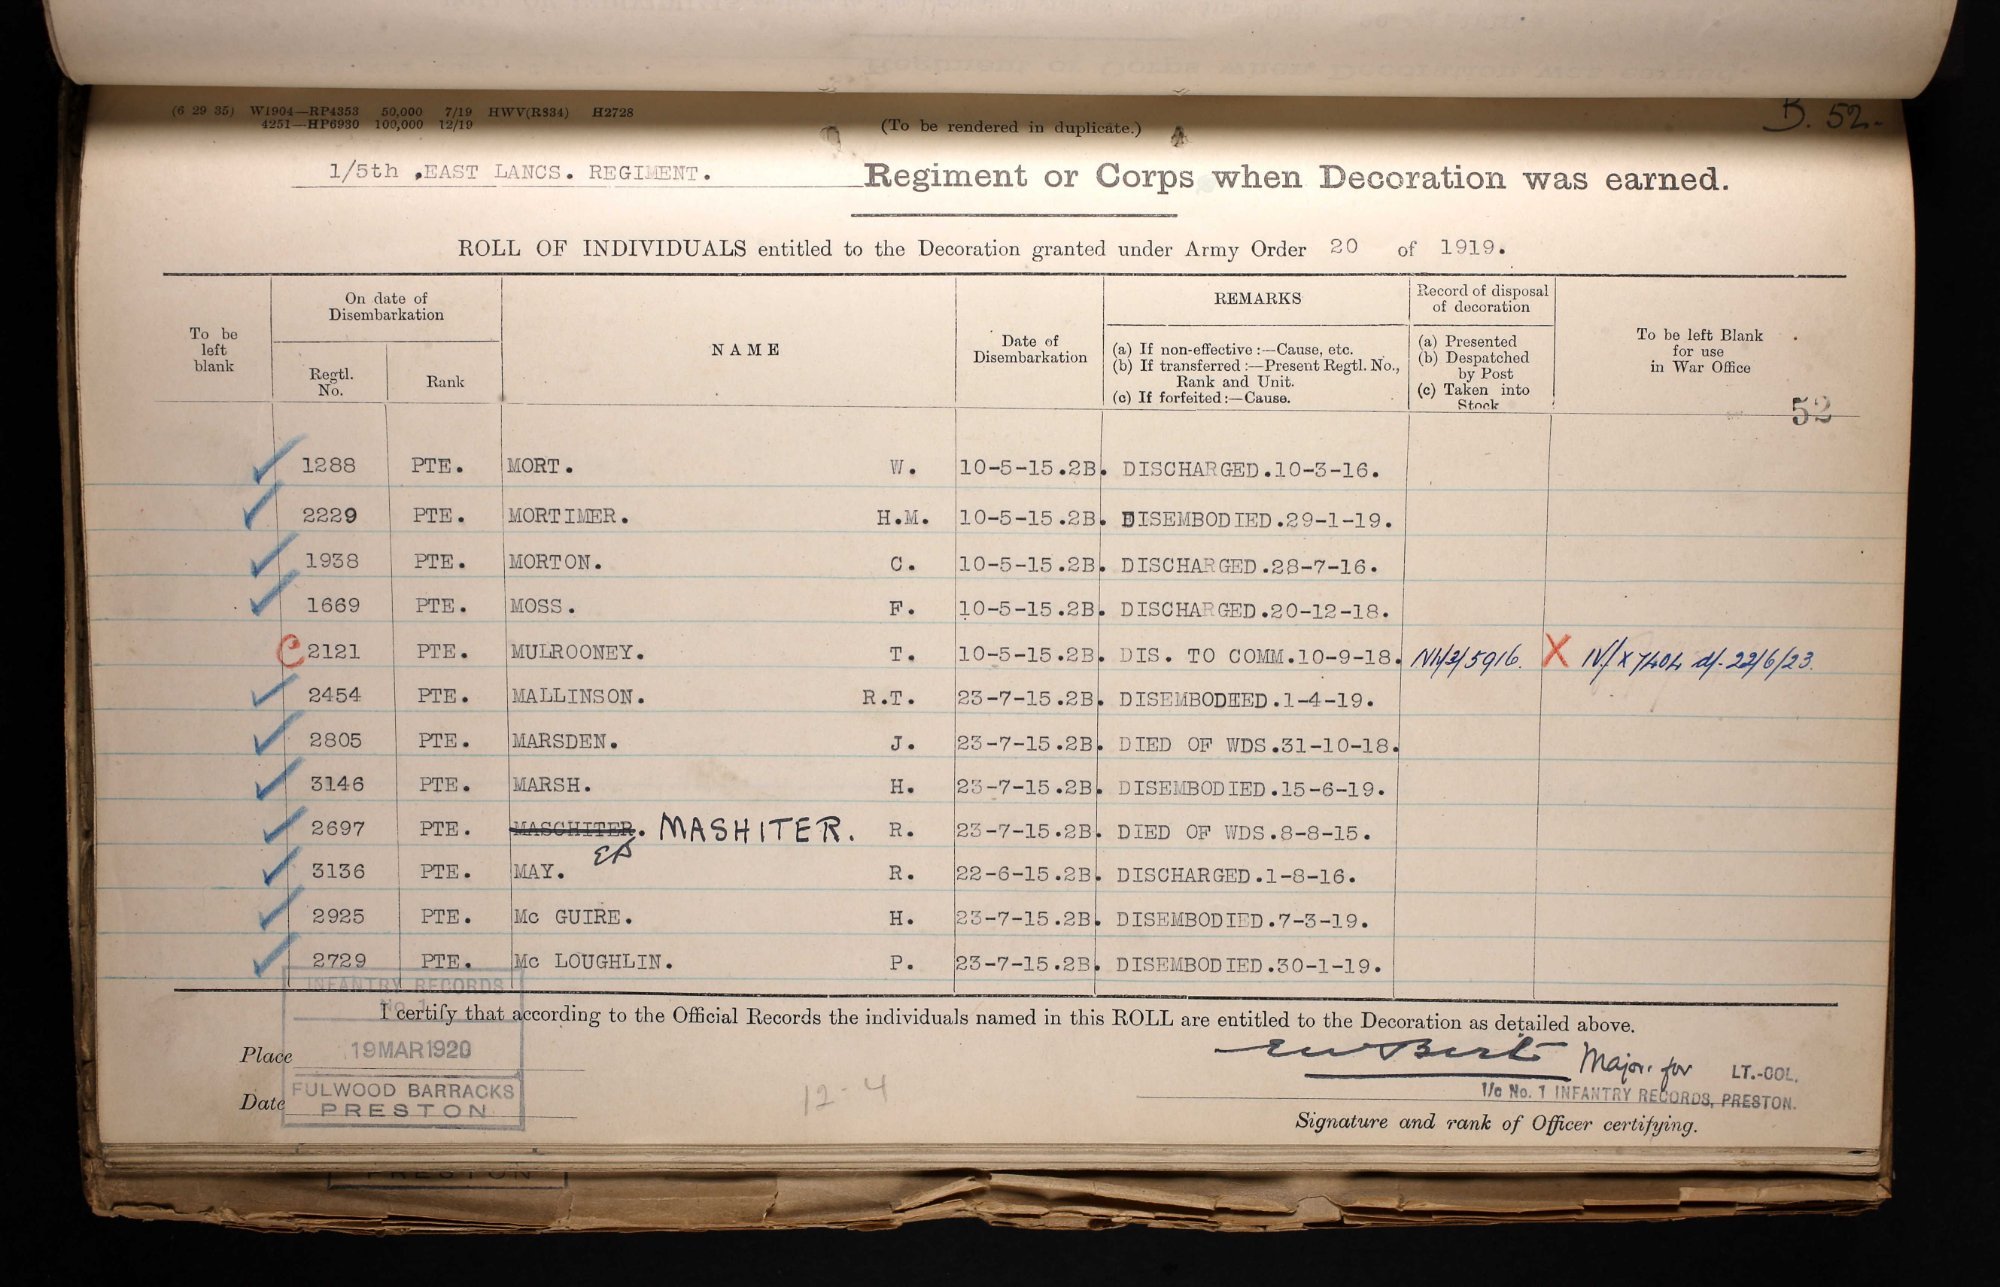 (6 29 35) W1904—RP4353 50,000 7/19 HWV(R834) H2728
4251—HP6930 100,000 12/19
(To be rendered in duplicate.)
B. 52.
1/5th ,EAST LANCS. REGIMENT. Regiment or Corps when Decoration was earned.
ROLL OF INDIVIDUALS entitled to the Decoration granted under Army Order 20 of 1919.
To be left blank
On date of Disembarkation
Regtl. No.
Rank
NAME
Date of Disembarkation
REMARKS
(a) If non-effective:—Cause, etc.
(b) If transferred:—Present Regtl. No., Rank and Unit.
(c) If forfeited:—Cause.
Record of disposal of decoration
(a) Presented
(b) Despatched by Post
(c) Taken into Stock
To be left Blank for use in War Office
52
1288 PTE. MORT. W. 10-5-15.2B. DISCHARGED.10-3-16.
2229 PTE. MORTIMER. H.M. 10-5-15.2B. DISEMBODIED.29-1-19.
1938 PTE. MORTON. C. 10-5-15.2B. DISCHARGED.28-7-16.
1669 PTE. MOSS. F. 10-5-15.2B. DISCHARGED.20-12-18.
C 2121 PTE. MULROONEY. T. 10-5-15.2B. DIS. TO COMM.10-9-18. X 22/6/23.
2454 PTE. MALLINSON. R.T. 23-7-15.2B. DISEMBODIED.1-4-19.
2805 PTE. MARSDEN. J. 23-7-15.2B. DIED OF WDS.31-10-18.
3146 PTE. MARSH. H. 23-7-15.2B. DISEMBODIED.15-6-19.
2697 PTE. MASCHITER. MASHITER. R. 23-7-15.2B. DIED OF WDS.8-8-15.
3136 PTE. MAY. R. 22-6-15.2B. DISCHARGED.1-8-16.
2925 PTE. Mc GUIRE. H. 23-7-15.2B. DISEMBODIED.7-3-19.
2729 PTE. Mc LOUGHLIN. P. 23-7-15.2B. DISEMBODIED.30-1-19.
INFANTRY RECORDS
No 1
I certify that according to the Official Records the individuals named in this ROLL are entitled to the Decoration as detailed above.
Place 19 MAR 1920
Major. for LT.-COL.
FULWOOD BARRACKS
12-4
I/c No. 1 INFANTRY RECORDS, PRESTON.
Date PRESTON
Signature and rank of Officer certifying.
PRESTON